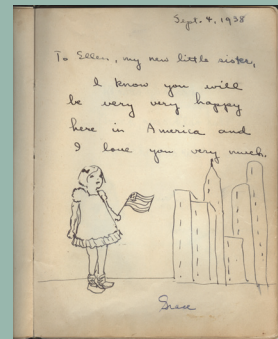 Sept. 4, 1938
To Ellen, my new little sister,
I know you will
be very very happy
here in America and
I love you very much.
Grace